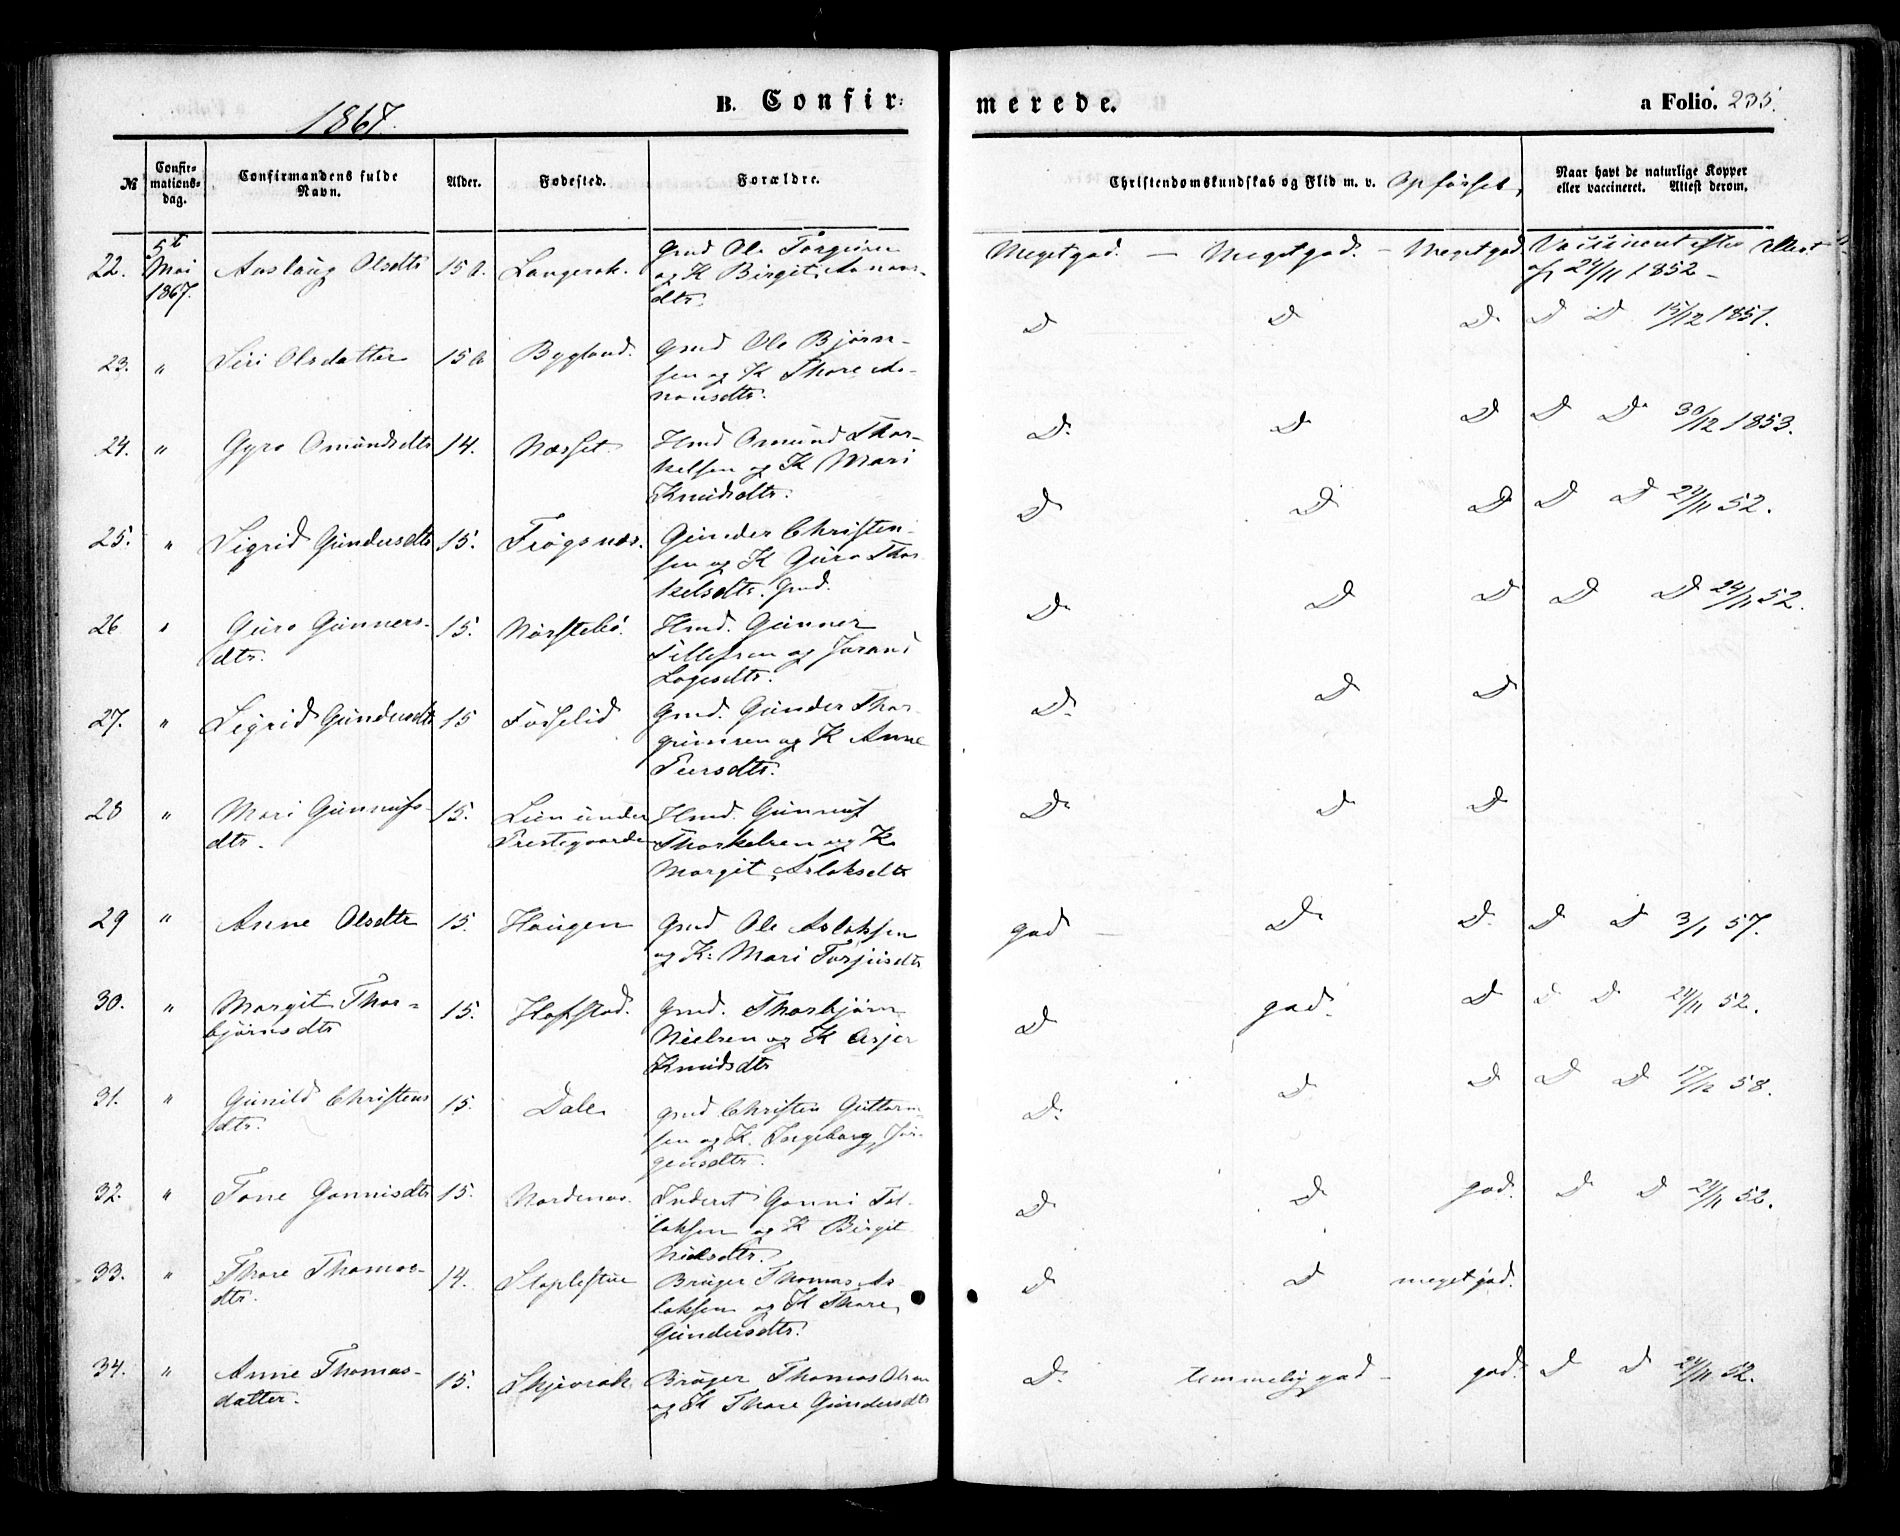 1867.
B. Confir-
merede.
a Folio. 235.
№
Confir-
mations-
dag.
Confirmandens fulde
Navn.
Alder.
Fødested.
Forældre.
Christendomskundskab og Flid m. v. Opførsel,
Naar havt de naturlige Kopper
eller vaccineret. Attest derom.
22. 5t Mai 1867. Aaslaug Olsdtr 15 A. Langerak. Gmd Ole Torgiusen
og K Birgit Aanons-
dtr. Megetgod. — Megetgod. — Megetgod. Vaccineret efter Attest
af 24/11 1852 —
23. " Siri Olsdatter 15 A Bygland. Gmd Ole Bjørn-
sen og K Thore Aa-
nonsdtr. D D D. D D 15/12 1851.
24. " Gyro Omundsdtr 14. Næsset. Hmd Omund Thor-
kelsen og K Mari
Knudsdtr. D. D. D D D. 30/12 1853.
25. " Sigrid Gundersdtr 15. Frøgsnæs. Gunder Christen-
sen og K Guro Thor-
kelsdtr. Gmd. D D. D D D 24/11 52.
26 " Guro Gunners-
dtr. 15. Nørstebø. Hmd. Gunner
Tellefsen og Joran
Lagesdtr. D. D D D D 24/11 52.
27. " Sigrid Gundersdtr 15 Fosselid Gmd. Gunder Thor-
grimsen og K Anne
Peersdtr. D. D D
28 " Mari Gunnufs-
dtr. 15. Lien under
Prestegaarden Hmd. Gunnuf
Thorkelsen og K
Margit Aslaksdtr D. D. D
29 " Anne Olsdtr 15. Haugen Gmd Ole Aslaksen
og K: Mari Torjusdtr god — D. D. D D 3/1 57.
30. " Margit Thor-
bjørnsdtr 15. Hafstad. Gmd. Thorbjørn
Nielsen og K Asjer
Knudsdtr D god. D D D 24/11 52.
31. " Gunild Christens
dtr. 15. Dale Gmd Christen Guttorm-
sen og K. Ingeborg Jør-
gensdtr. D. D. D D D 17/12 58.
32. " Tone Gonnisdtr 15. Nordenaa. Inderst Gonni Tol-
laksen og K Birgit
Nielsdtr. D. D god. D. D 24/11 52.
33. " Thore Thomas-
dtr. 14. Staplestue Bruger Thomas As-
laksen og K Thore
Gundersdtr. D D megetgod.
34. " Anne Thomas-
datter. 15. Skjevrak Bruger Thomas Olsen
og K Thore Gundersdtr D. temmelig god — god. D D 24/11 52.